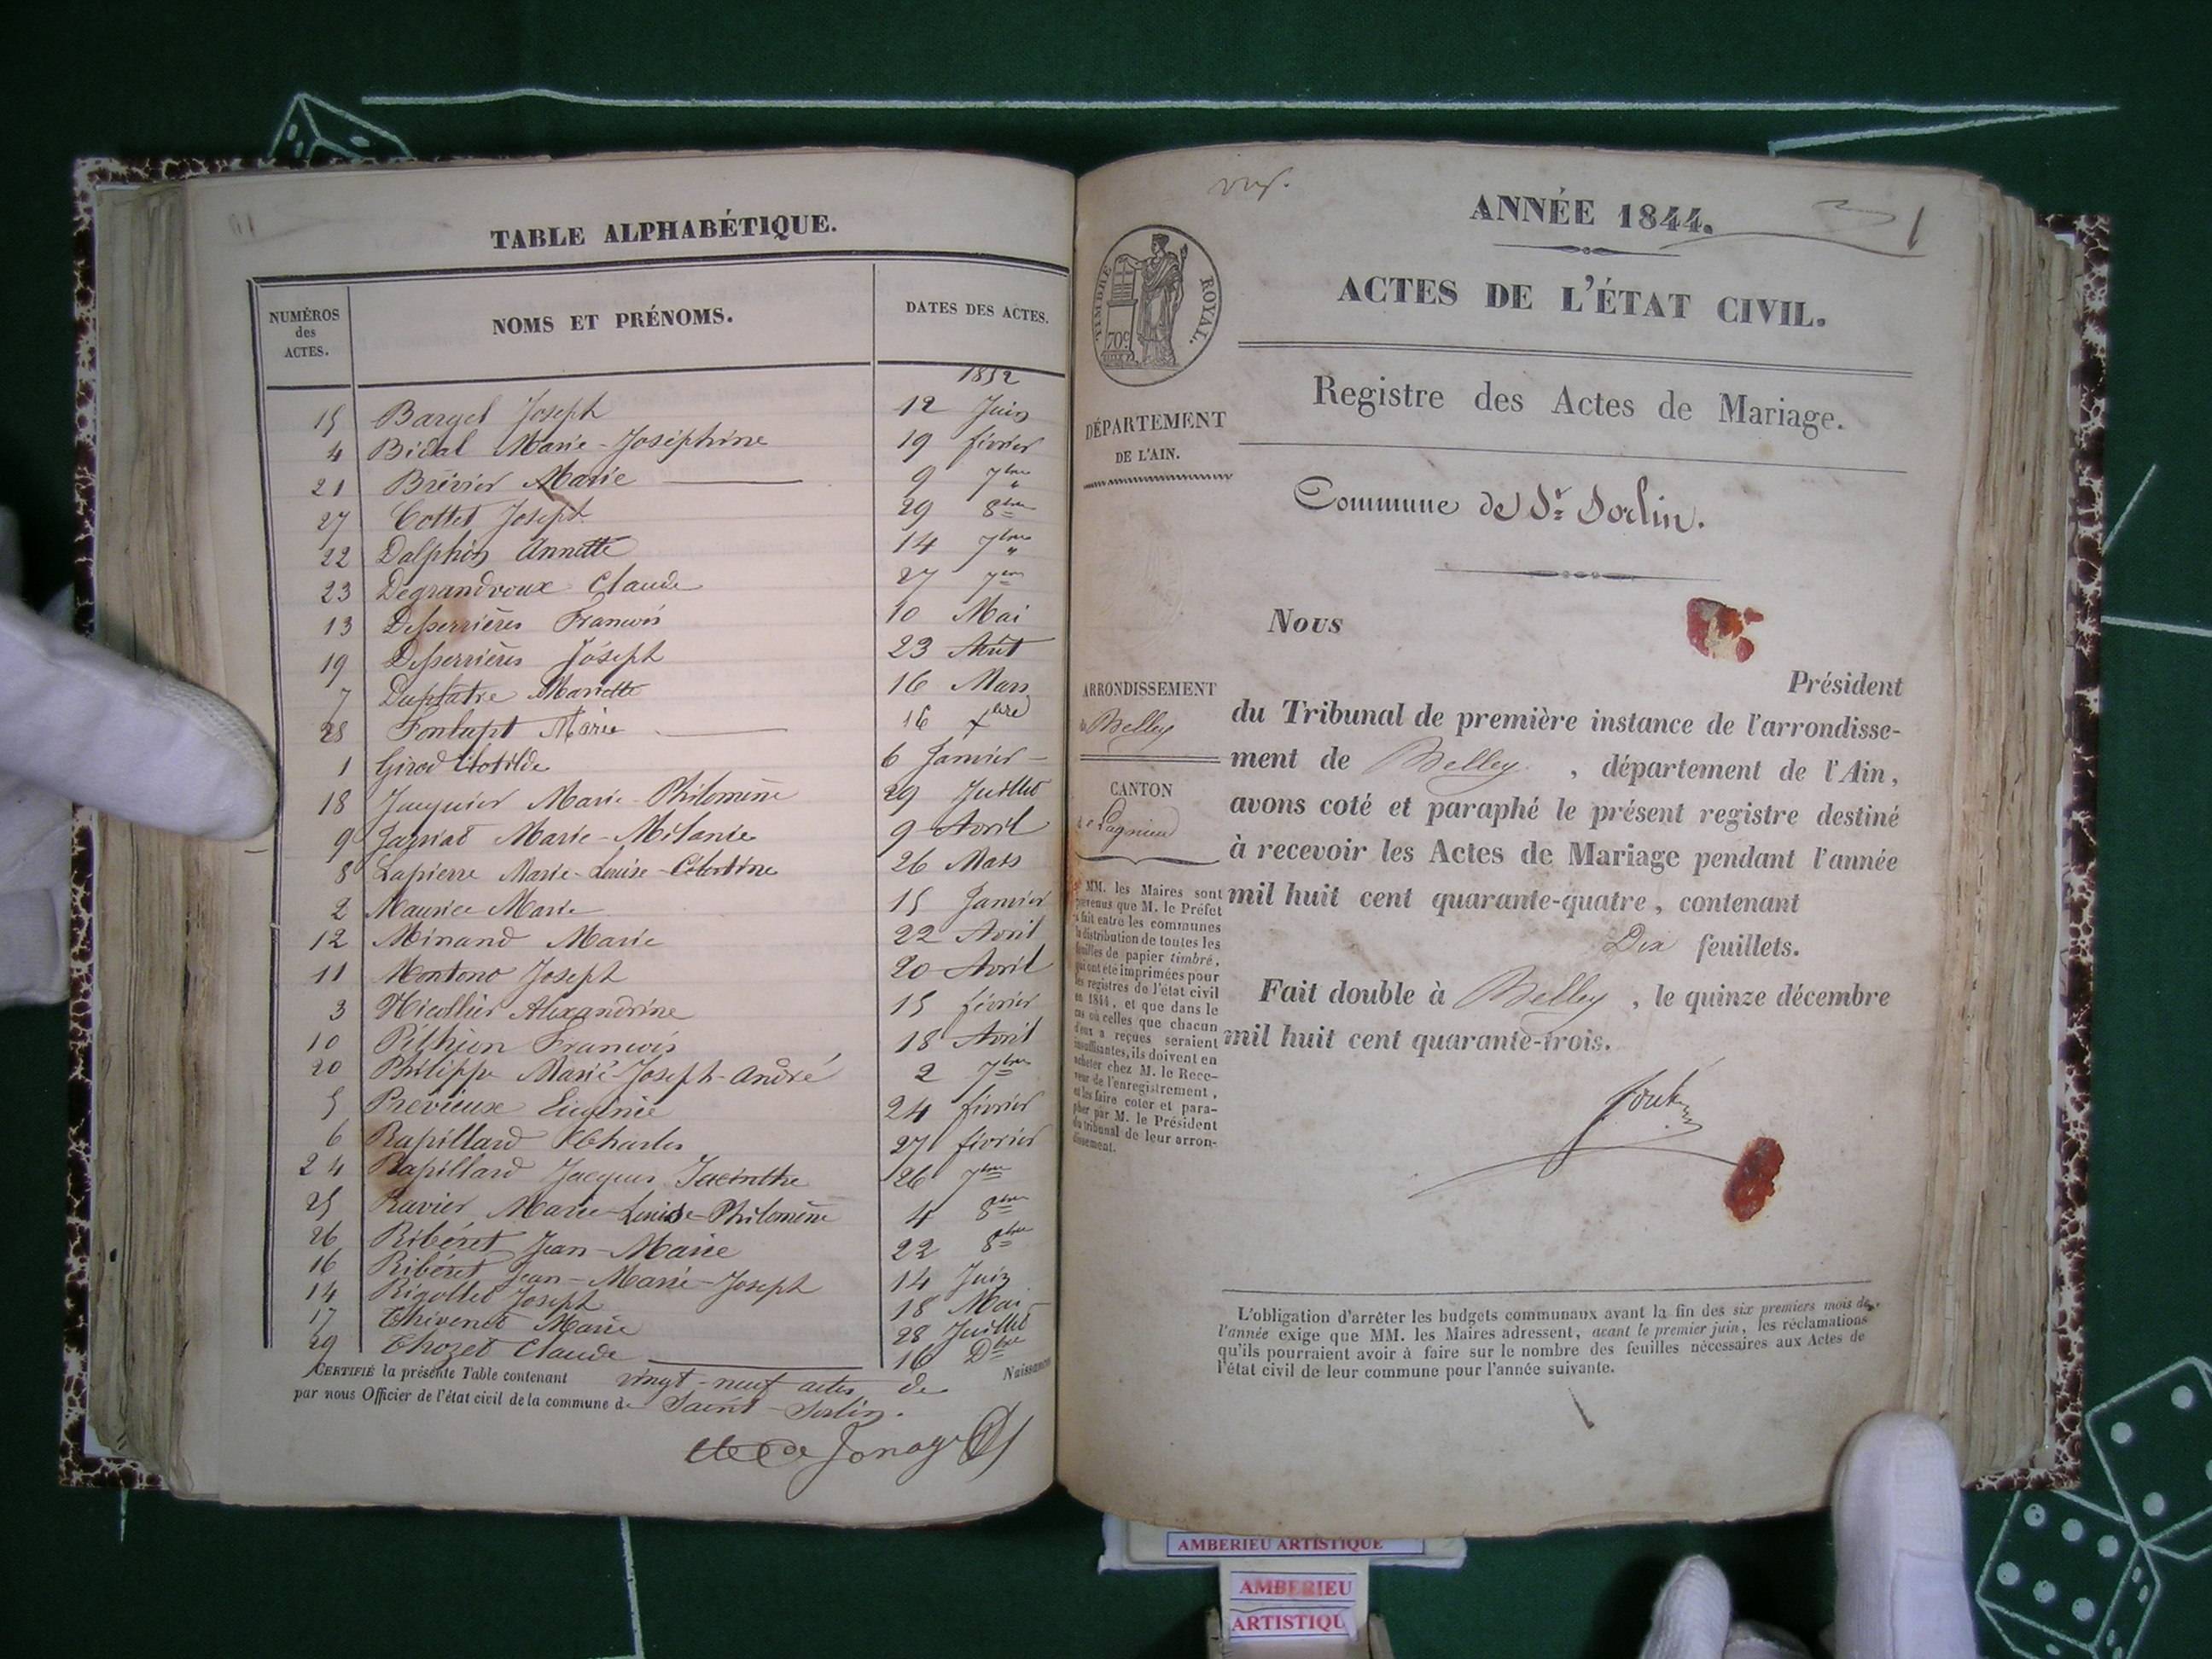 TABLE ALPHABÉTIQUE.
NUMÉROS des ACTES.
NOMS ET PRÉNOMS.
DATES DES ACTES.
1852
15 Bargel Joseph 12 Juin
4 Bidal Marie-Joséphine 19 février
21 Brévier Marie 9 7bre
27 Cottet Joseph 29 8bre
22 Dalphin Annette 14 7bre
23 Degrandvoux Claude 27 7bre
13 Desserrières Francois 10 Mai
19 Desserrières Joseph 23 Aût
7 Duplatre Mariette 16 Mars
28 Fonlupt Marie 16 Xbre
1 Girod Clotilde 6 Janvier
18 Jacquier Marie-Philomène 29 Juillet
9 Janiat Marie-Mélanie 9 Avril
8 Lapierre Marie-Louise-Célestine 26 Mars
2 Maurice Marie 15 Janvier
12 Minand Marie 22 Avril
11 Montono Joseph 20 Avril
3 Nicollier Alexandrine 15 février
10 Pithion Francois 18 Avril
20 Philippe Marie-Joseph-André 2 7bre
5 Previeux Eugénie 24 février
6 Rapillard Charles 27 février
24 Rapillard Jacques Jacinthe 26 7bre
25 Ravier Marie-Louise-Philomène 4 8bre
26 Ribéret Jean-Marie 22 8bre
16 Ribéret Jean-Marie-Joseph 14 Juin
14 Rigollet Joseph 18 Mai
17 Thivenet Marie 28 Juillet
29 Thozet Claude 16 Dbre
CERTIFIÉ la présente Table contenant vingt-neuf actes de Naissance
par nous Officier de l'état civil de la commune de Saint-Sorlin.
ANNÉE 1844.
1
TIMBRE ROYAL.
70c
ACTES DE L'ÉTAT CIVIL.
Registre des Actes de Mariage.
DÉPARTEMENT
DE L'AIN.
Commune de St Sorlin.
Nous
Président
ARRONDISSEMENT
Belley
du Tribunal de première instance de l'arrondisse-
ment de Belley, département de l'Ain,
CANTON
de Lagnieu
avons coté et paraphé le présent registre destiné
à recevoir les Actes de Mariage pendant l'année
mil huit cent quarante-quatre, contenant
Dix feuillets.
Fait double à Belley, le quinze décembre
mil huit cent quarante-trois.
MM. les Maires sont
prévenus que M. le Préfet
a fait entre les communes
la distribution de toutes les
feuilles de papier timbré,
qui ont été imprimées pour
les registres de l'état civil
en 1844, et que dans le
cas où celles que chacun
d'eux a reçues seraient
insuffisantes, ils doivent en
acheter chez M. le Rece-
veur de l'enregistrement,
et les faire coter et para-
pher par M. le Président
du tribunal de leur arron-
dissement.
L'obligation d'arrêter les budgets communaux avant la fin des six premiers mois de
l'année exige que MM. les Maires adressent, avant le premier juin, les réclamations
qu'ils pourraient avoir à faire sur le nombre des feuilles nécessaires aux Actes de
l'état civil de leur commune pour l'année suivante.
AMBERIEU ARTISTIQUE
AMBERIEU
ARTISTIQU